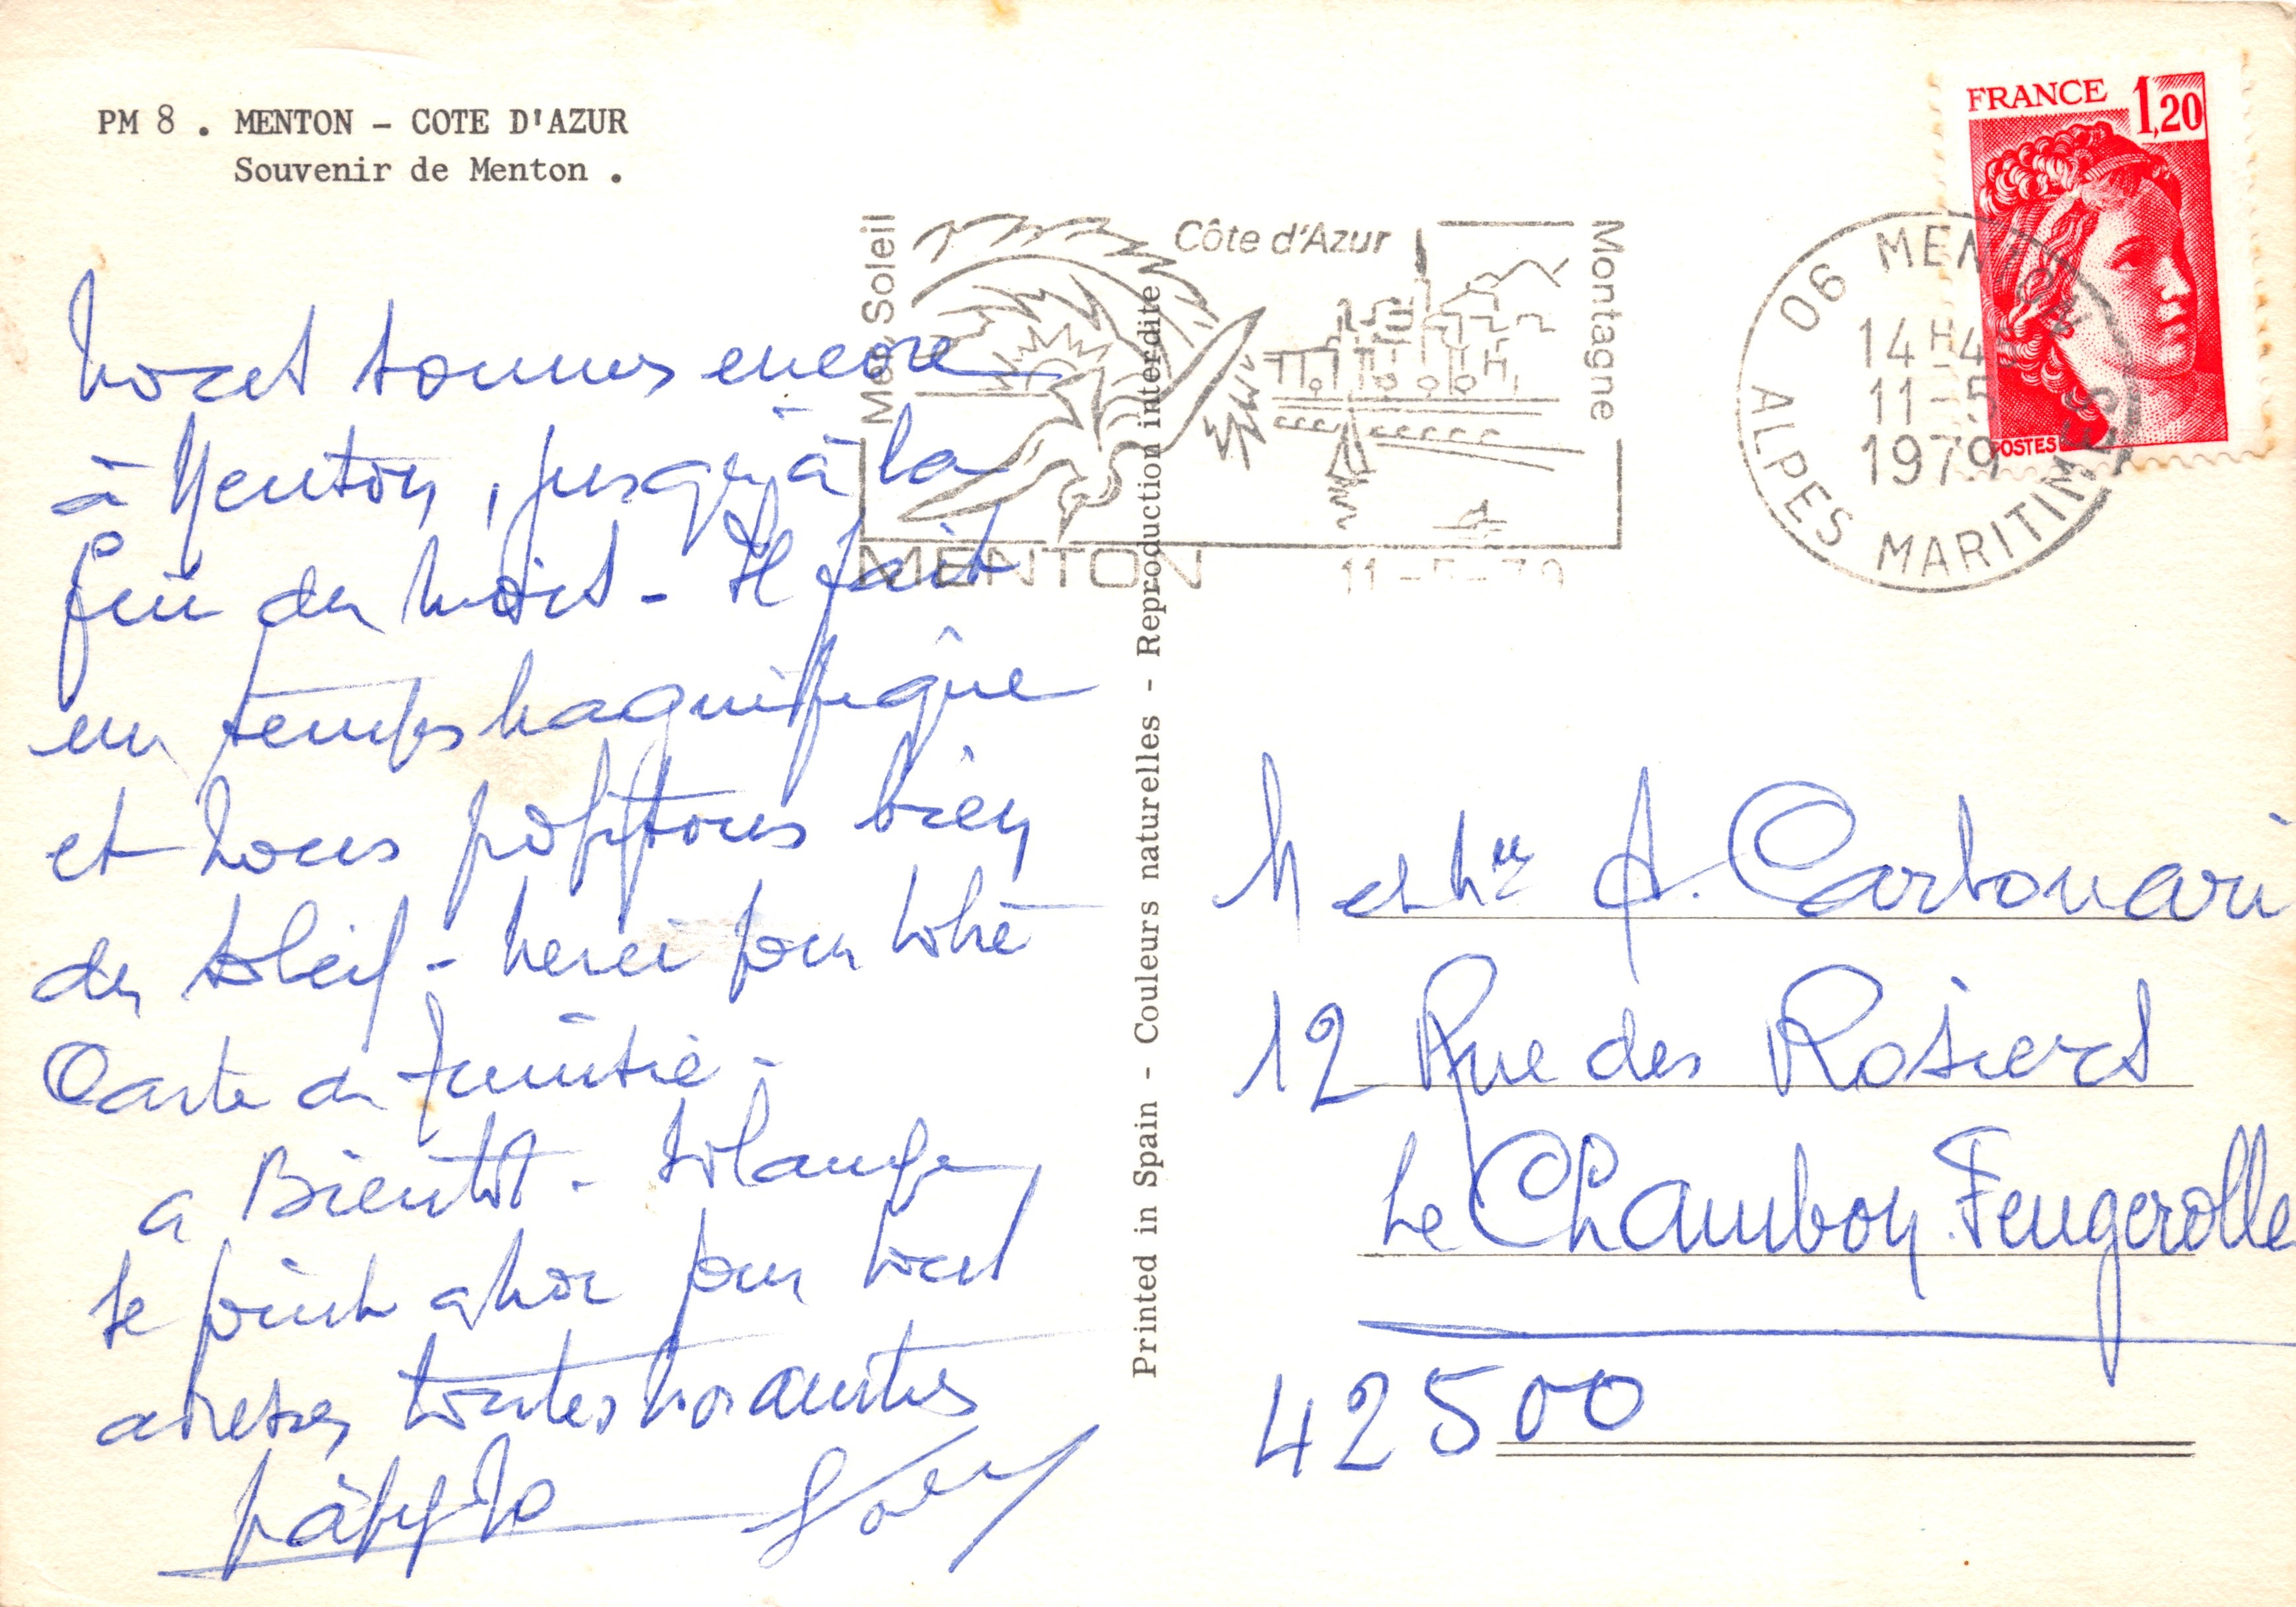 PM 8 . MENTON - COTE D'AZUR
Souvenir de Menton .
FRANCE 1,20
POSTES
Mer, Soleil
Côte d'Azur
Montagne
MENTON
11-5-79
06 MENTON
14H45
11-5
1979
ALPES MARITIMES
Nous sommes encore
à Menton, jusqu'à la
fin du mois - Il fait
un temps magnifique
et nous profitons bien
du soleil - merci pour votre
Carte de Tunisie -
a Bientot - Solange
se joint a moi pour vous
adresser toutes nos amitiés
Printed in Spain - Couleurs naturelles - Reproduction interdite
M et Mme A. Carbonari
12 Rue des Rosiers
Le Chambon Feugerolle
42500